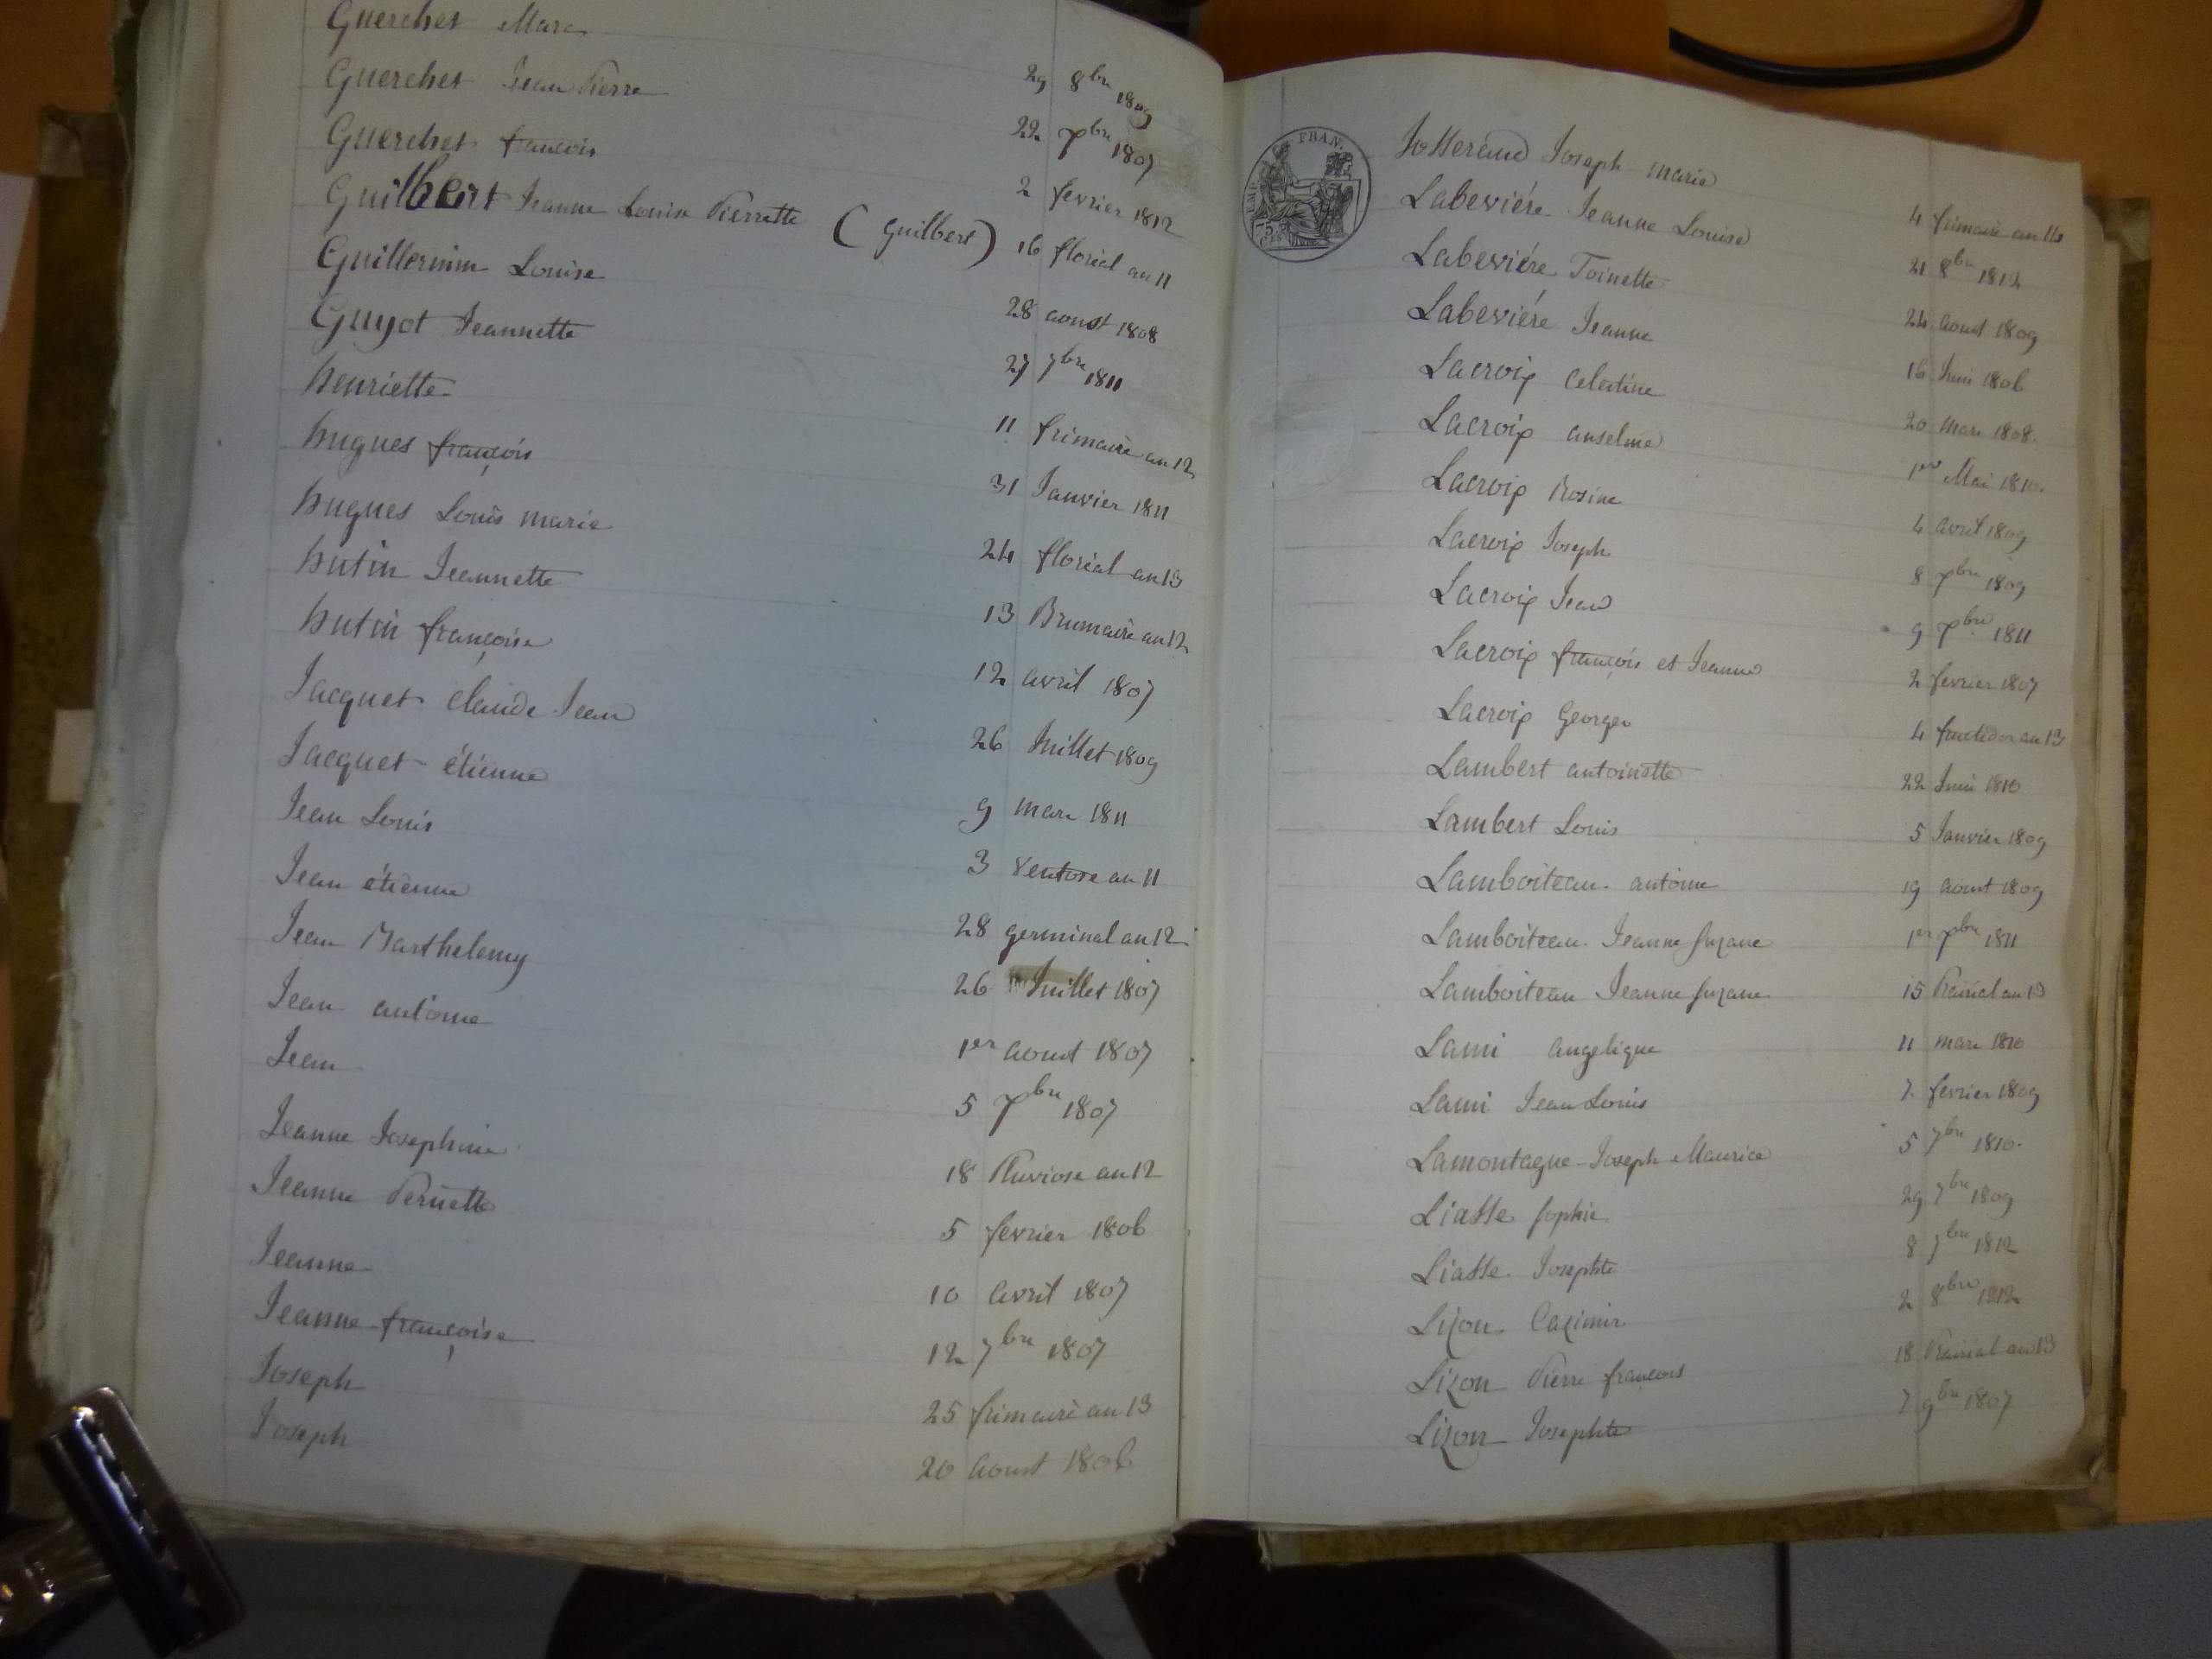 Guerchet Marc 29 8bre 1809
Guerchet Jean Pierre 22 7bre 1807
Guerchet françois 2 fevrier 1812
Guilbert Jeanne Louise Pierrette (Guilbert) 16 florial an 11
Guillermin Louise 28 aoust 1808
Guyot Jeannette 27 7bre 1811
henriette 11 frimaire an 12
hugues françois 31 Janvier 1811
hugues Louis marie 24 florial an 13
hutin Jeannette 13 Brumaire an 12
hutin françoise 12 avril 1807
Jacquet claude Jean 26 Juillet 1809
Jacquet étienne 9 mars 1811
Jean Louis 3 ventose an 11
Jean étienne 28 germinal an 12
Jean Barthelemy 26 Juillet 1807
Jean antoine 1er aoust 1807
Jean 5 7bre 1807
Jeanne Josephine 18 Pluviose an 12
Jeanne Pernette 5 fevrier 1806
Jeanne 10 avril 1807
Jeanne françoise 12 7bre 1807
Joseph 25 frimaire an 13
Joseph 20 aoust 1806
EMP. FRAN.
75
Jotterand Joseph marie 4 frimaire an 14
Labeviére Jeanne Louise 21 8bre 1812
Labeviére Toinette 24 aoust 1809
Labeviére Jeanne 16 Juin 1806
Lacroix celestine 20 mars 1808.
Lacroix anselme 1er Mai 1810.
Lacroix Rosine 4 avril 1809
Lacroix Joseph 8 7bre 1809
Lacroix Jean 9 7bre 1811
Lacroix françois et Jeanne 2 fevrier 1807
Lacroix George 4 fructidor an 13
Lambert antoinette 22 Juin 1810
Lambert Louis 5 Janvier 1809
Lamboiteau antoine 19 aoust 1809
Lamboiteau Jeanne suzane 1er 7bre 1811
Lamboiteau Jeanne suzane 15 Prairial an 13
Lami angelique 11 mars 1810
Lami Jean Louis 7 fevrier 1809
Lamontagne Joseph Maurice 5 7bre 1810.
Liasse sophie 29 7bre 1809
Liasse Josephte 8 7bre 1812
Lizon Cazimir 2 8bre 1812
Lizon Pierre françois 18 Prairial an 13
Lizon Josephte 7 9bre 1807